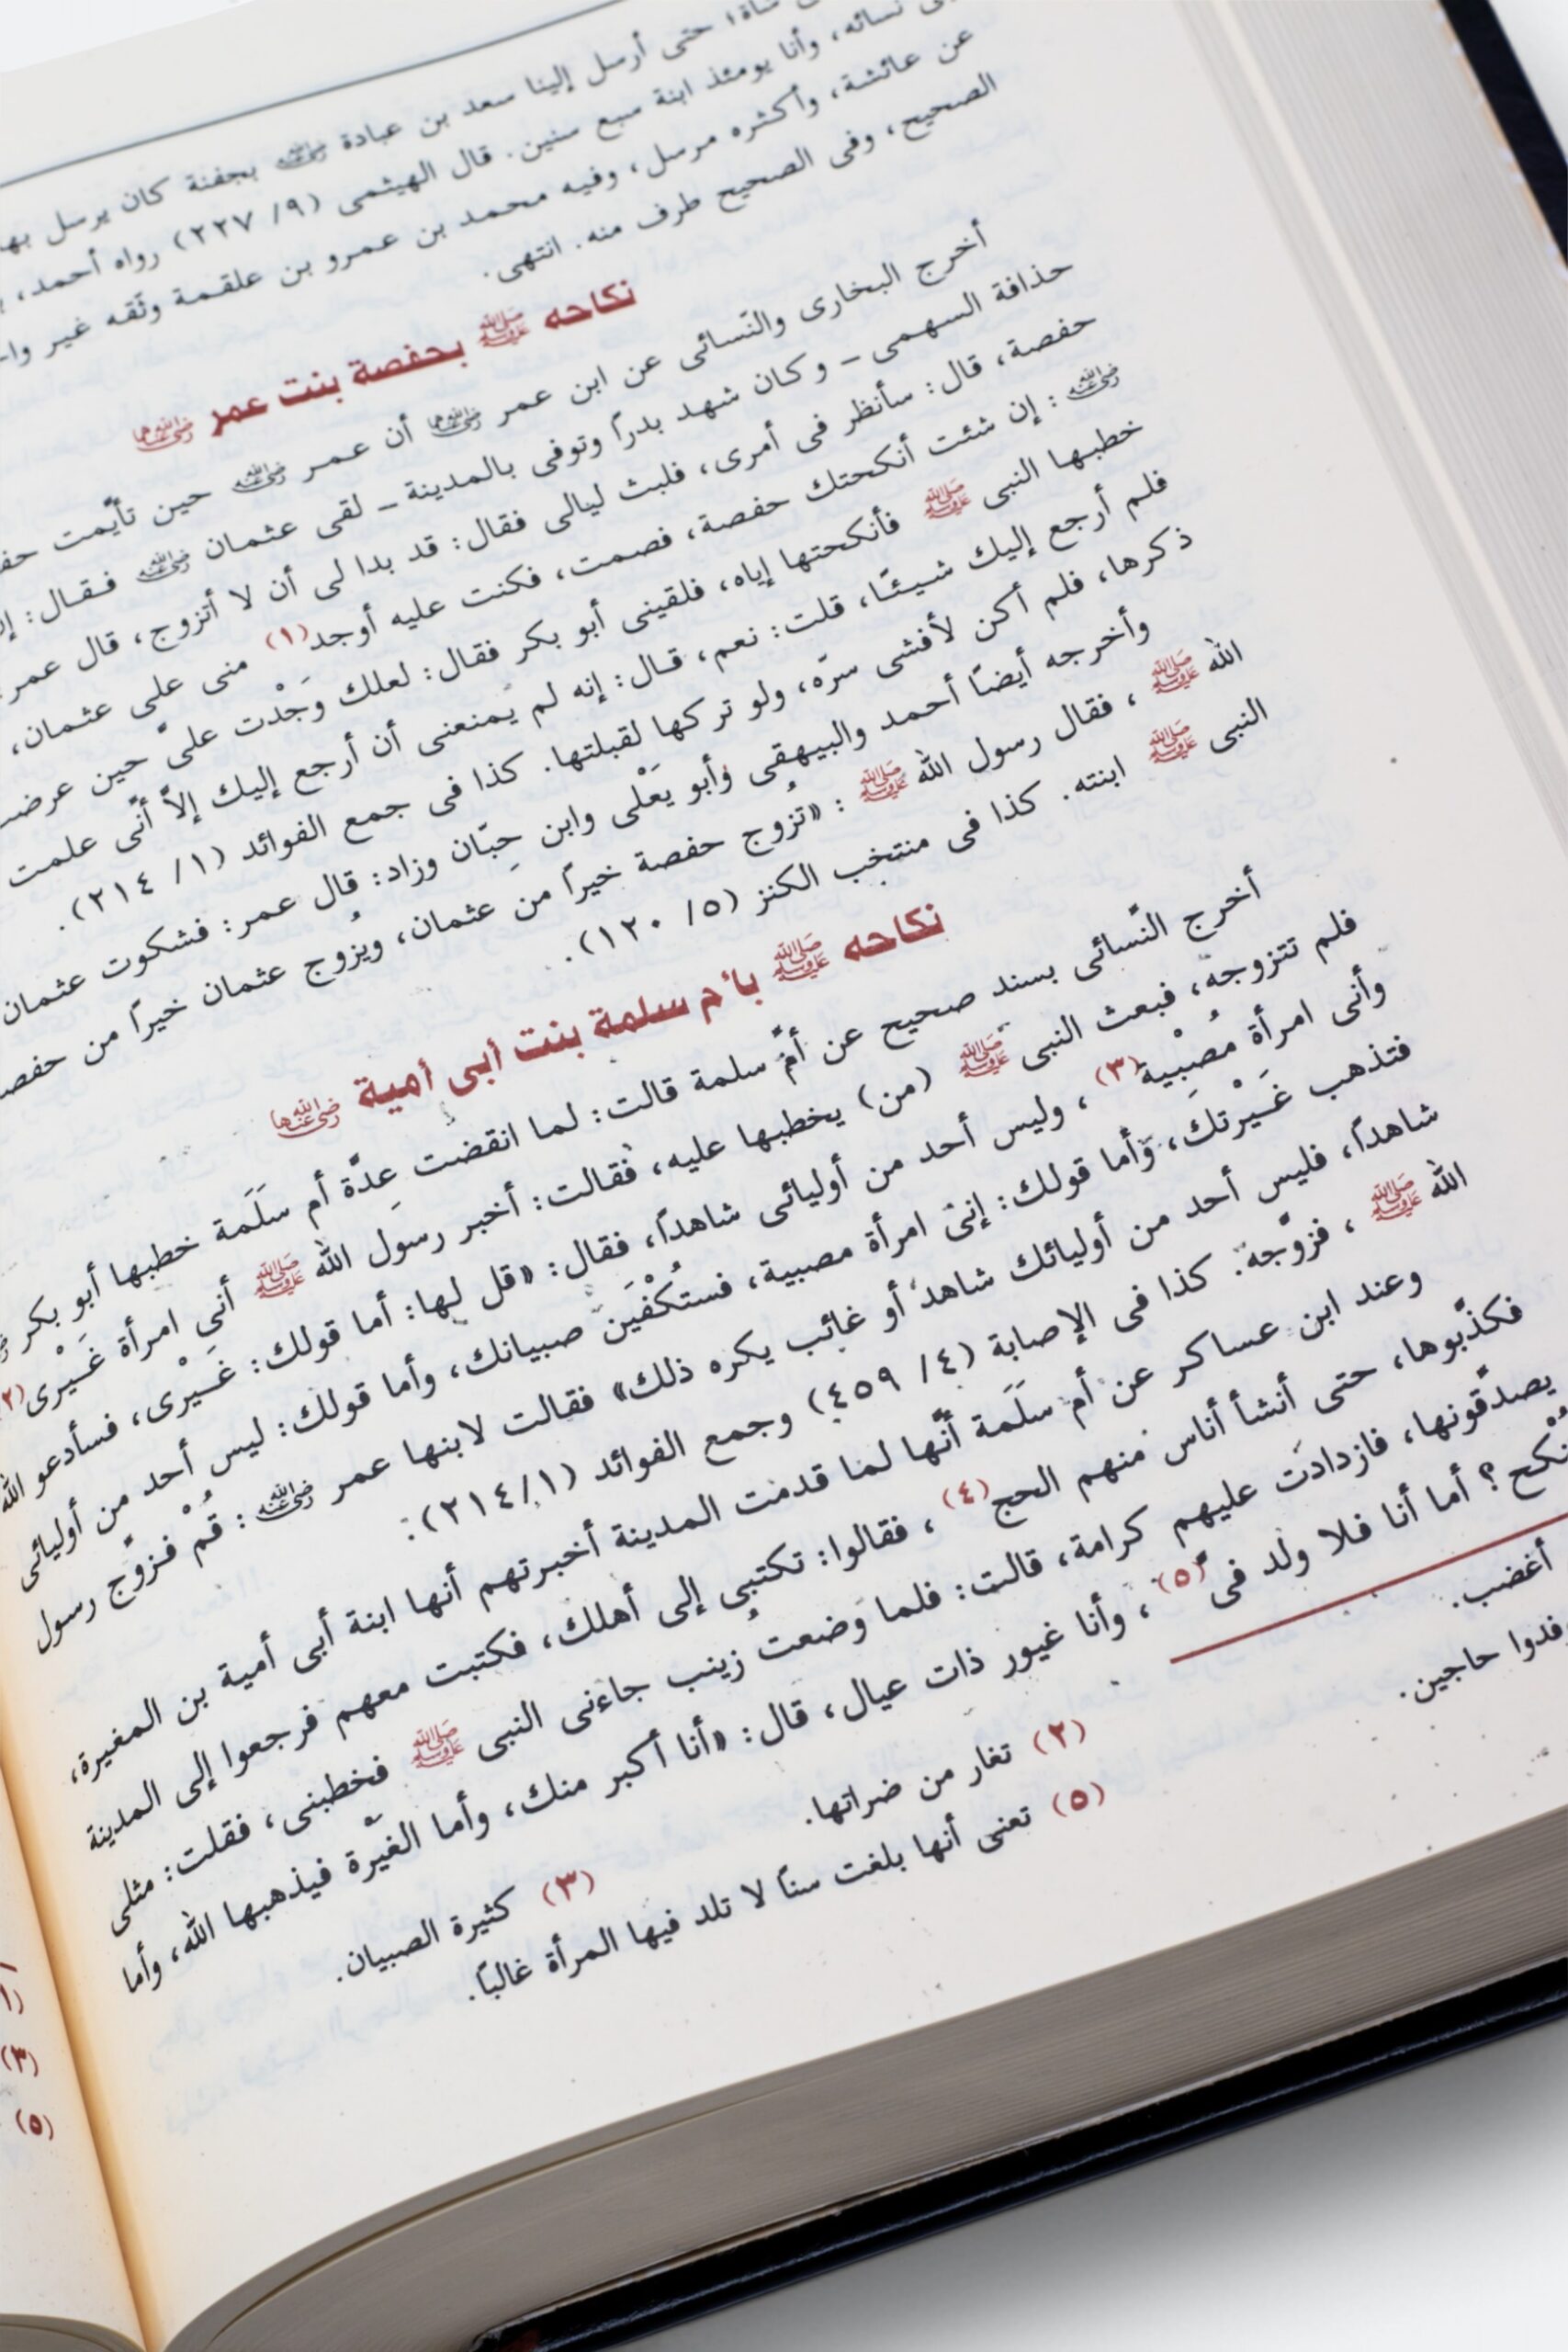 شاة؛ حتى أرسل إلينا سعد بن عبادة رضي الله عنه بجفنة كان يرسل بها
نسائه، وأنا يومئذ ابنة سبع سنين. قال الهيثمى (٩/ ٢٢٧) رواه أحمد،
عن عائشة، وأكثره مرسل، وفيه محمد بن عمرو بن علقمة وثّقه غير
الصحيح، وفى الصحيح طرف منه. انتهى.
نكاحه ﷺ بحفصة بنت عمر رضي الله عنهما
أخرج البخارى والنّسائى عن ابن عمر رضي الله عنهما أن عمر رضي الله عنه حين تأيّمت
حذافة السهمى ـ وكان شهد بدراً وتوفى بالمدينة ـ لقى عثمان رضي الله عنه فقال:
حفصة، قال: سأنظر فى أمرى، فلبث ليالى فقال: قد بدا لى أن لا أتزوج، قال عمر
رضي الله عنه: إن شئت أنكحتك حفصة، فصمت، فكنت عليه أوجد(١) منى على عثمان،
خطبها النبى ﷺ فأنكحتها إياه، فلقينى أبو بكر فقال: لعلك وَجْدت علىّ حين
فلم أرجع إليك شيئًا، قلت: نعم، قال: إنه لم يمنعنى أن أرجع إليك إلاّ أنّى علمت
ذكرها، فلم أكن لأفشى سرّه، ولو تركها لقبلتها. كذا فى جمع الفوائد (١/ ٢١٤).
وأخرجه أيضًا أحمد والبيهقى وأبو يَعْلى وابن حِبّان وزاد: قال عمر: فشكوت عثمان
الله ﷺ، فقال رسول الله ﷺ: «تُزوج حفصة خيراً من عثمان، ويُزوج عثمان خيراً من
النبى ﷺ ابنته. كذا فى منتخب الكنز (٥/ ١٢٠).
نكاحه ﷺ بأم سلمة بنت أبى أمية رضي الله عنها
أخرج النّسائى بسند صحيح عن أمّ سلمة قالت: لما انقضت عِدّة أم سَلَمة خطبها أبو بكر
فلم تتزوجه، فبعث النبى ﷺ (من) يخطبها عليه، فقالت: أخبر رسول الله ﷺ أنى امرأة غَيْرى(٢)
وأنى امرأة مُصْبِية(٣)، وليس أحد من أوليائى شاهداً، فقال: «قل لها: أما قولك: غَيْرى، فسأدعو الله
فتذهب غَيْرتك، وأما قولك: إنى امرأة مصبية، فستُكْفَين صبيانك، وأما قولك: ليس أحد من أوليائى
شاهداً، فليس أحد من أوليائك شاهد أو غائب يكره ذلك» فقالت لابنها عمر رضي الله عنه: قُمْ فزوِّج رسول
الله ﷺ، فزوّجه. كذا فى الإصابة (٤/ ٤٥٩) وجمع الفوائد (١/ ٢١٤).
وعند ابن عساكر عن أم سَلَمة أنّها لما قدمت المدينة أخبرتهم أنها ابنة أبى أمية بن المغيرة،
فكذّبوها، حتى أنشأ أناس منهم الحج(٤)، فقالوا: تكتبى إلى أهلك، فكتبت معهم فرجعوا إلى المدينة
يصدّقونها، فازدادت عليهم كرامة، قالت: فلما وَضعتُ زينب جاءنى النبى ﷺ فخطبنى، فقلت: مثلى
تُنْكح؟ أما أنا فلا ولد فىّ(٥)، وأنا غيور ذات عيال، قال: «أنا أكبر منك، وأما الغيْرة فيذهبها الله، وأما
أغضب.
(٢) تغار من ضراتها.
(٣) كثيرة الصبيان.
حاجين.
(٥) تعنى أنها بلغت سنًا لا تلد فيها المرأة غالبًا.
(٣)
(٥)